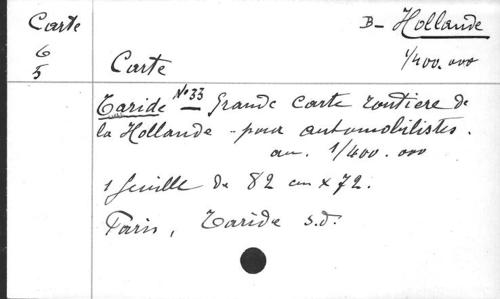 Carte B - Hollande
6
5 Carte 1/400.000
Taride N° 33 - Grande carte routière de
la Hollande - pour automobilistes.
au. 1/400.000
1 feuille de 82 cm x 72.
Paris, Taride s.d.